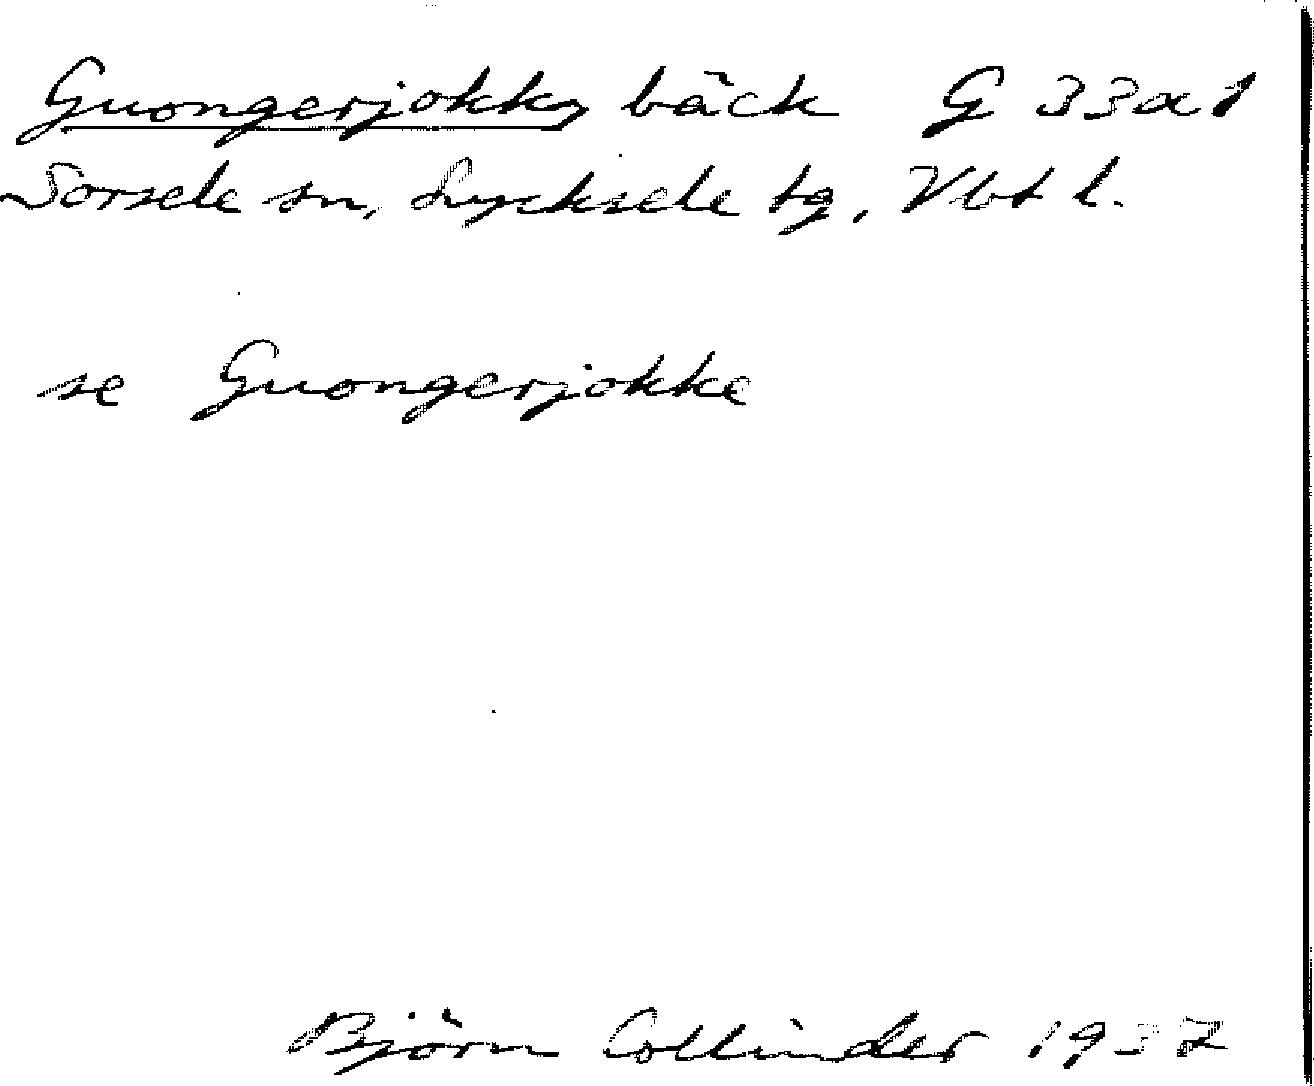 Guongerjokk, bäck G 33 a 1
Sorsele sn, Lycksele tg, Vbt l.
se Guongerjokke
Björn Collinder 1937